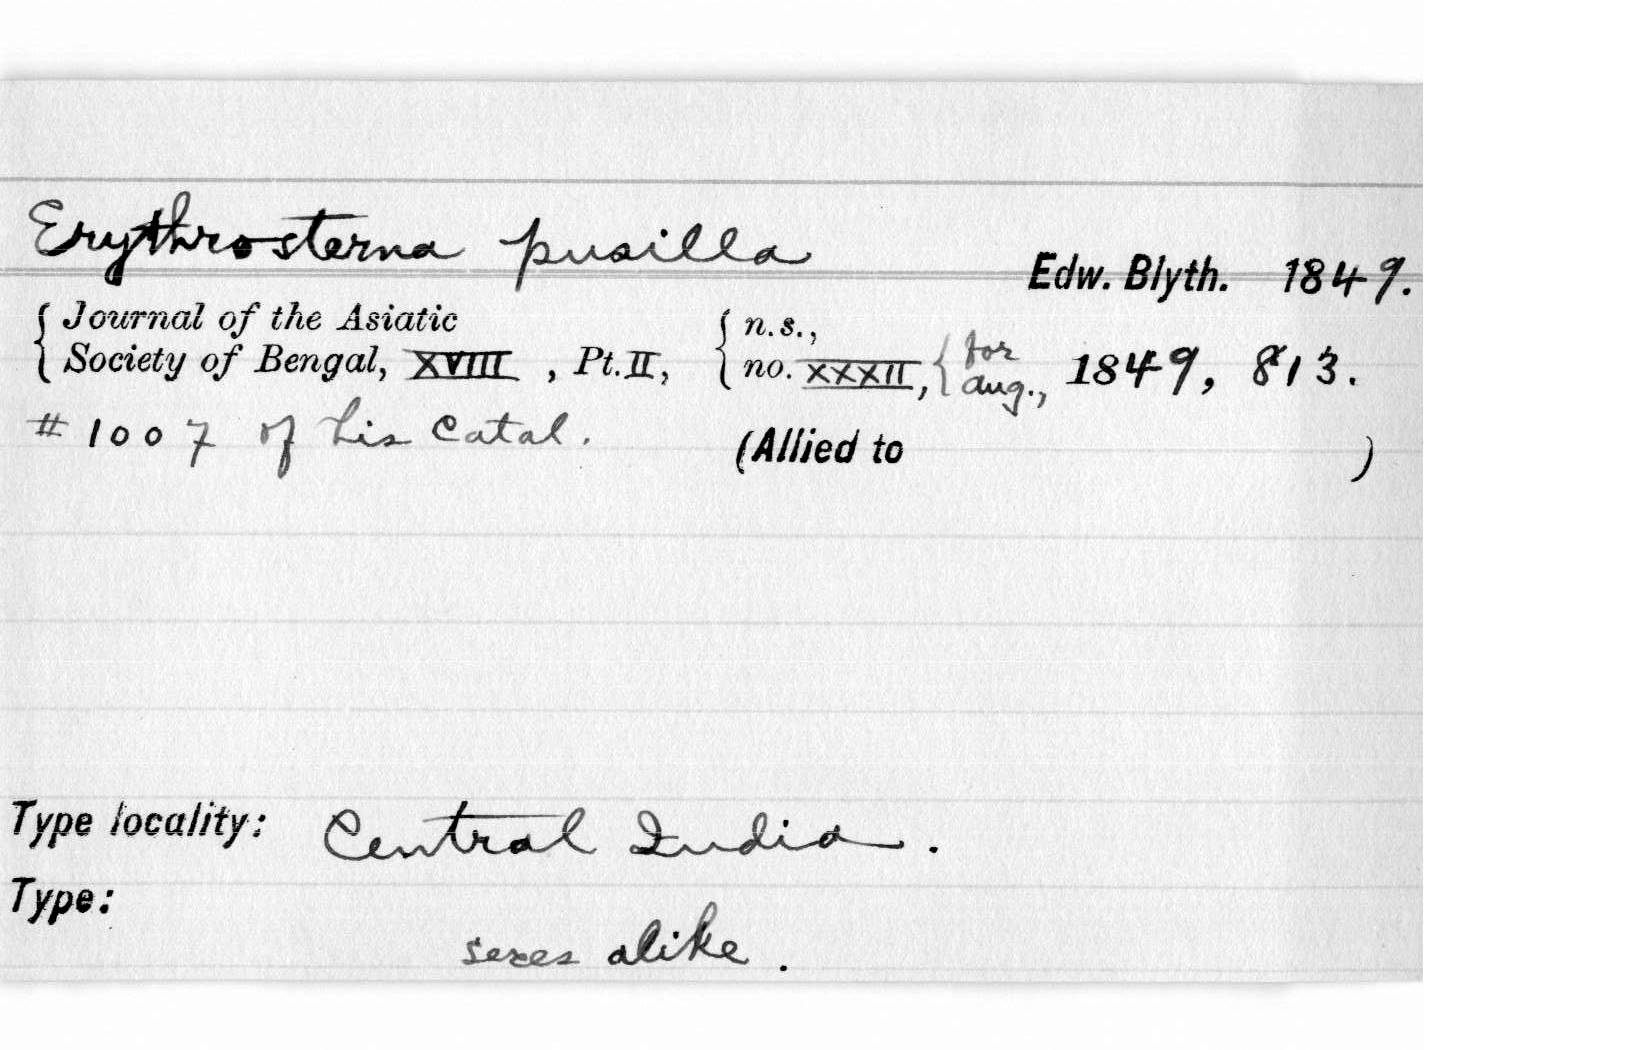 Erythrosterna pusilla
Edw. Blyth. 1849.
Journal of the Asiatic
Society of Bengal, XVIII , Pt. II, { n.s., no. XXXII, { for aug., 1849, 813.
# 1007 of his Catal. (Allied to )
Type locality: Central India .
Type:
sexes alike .